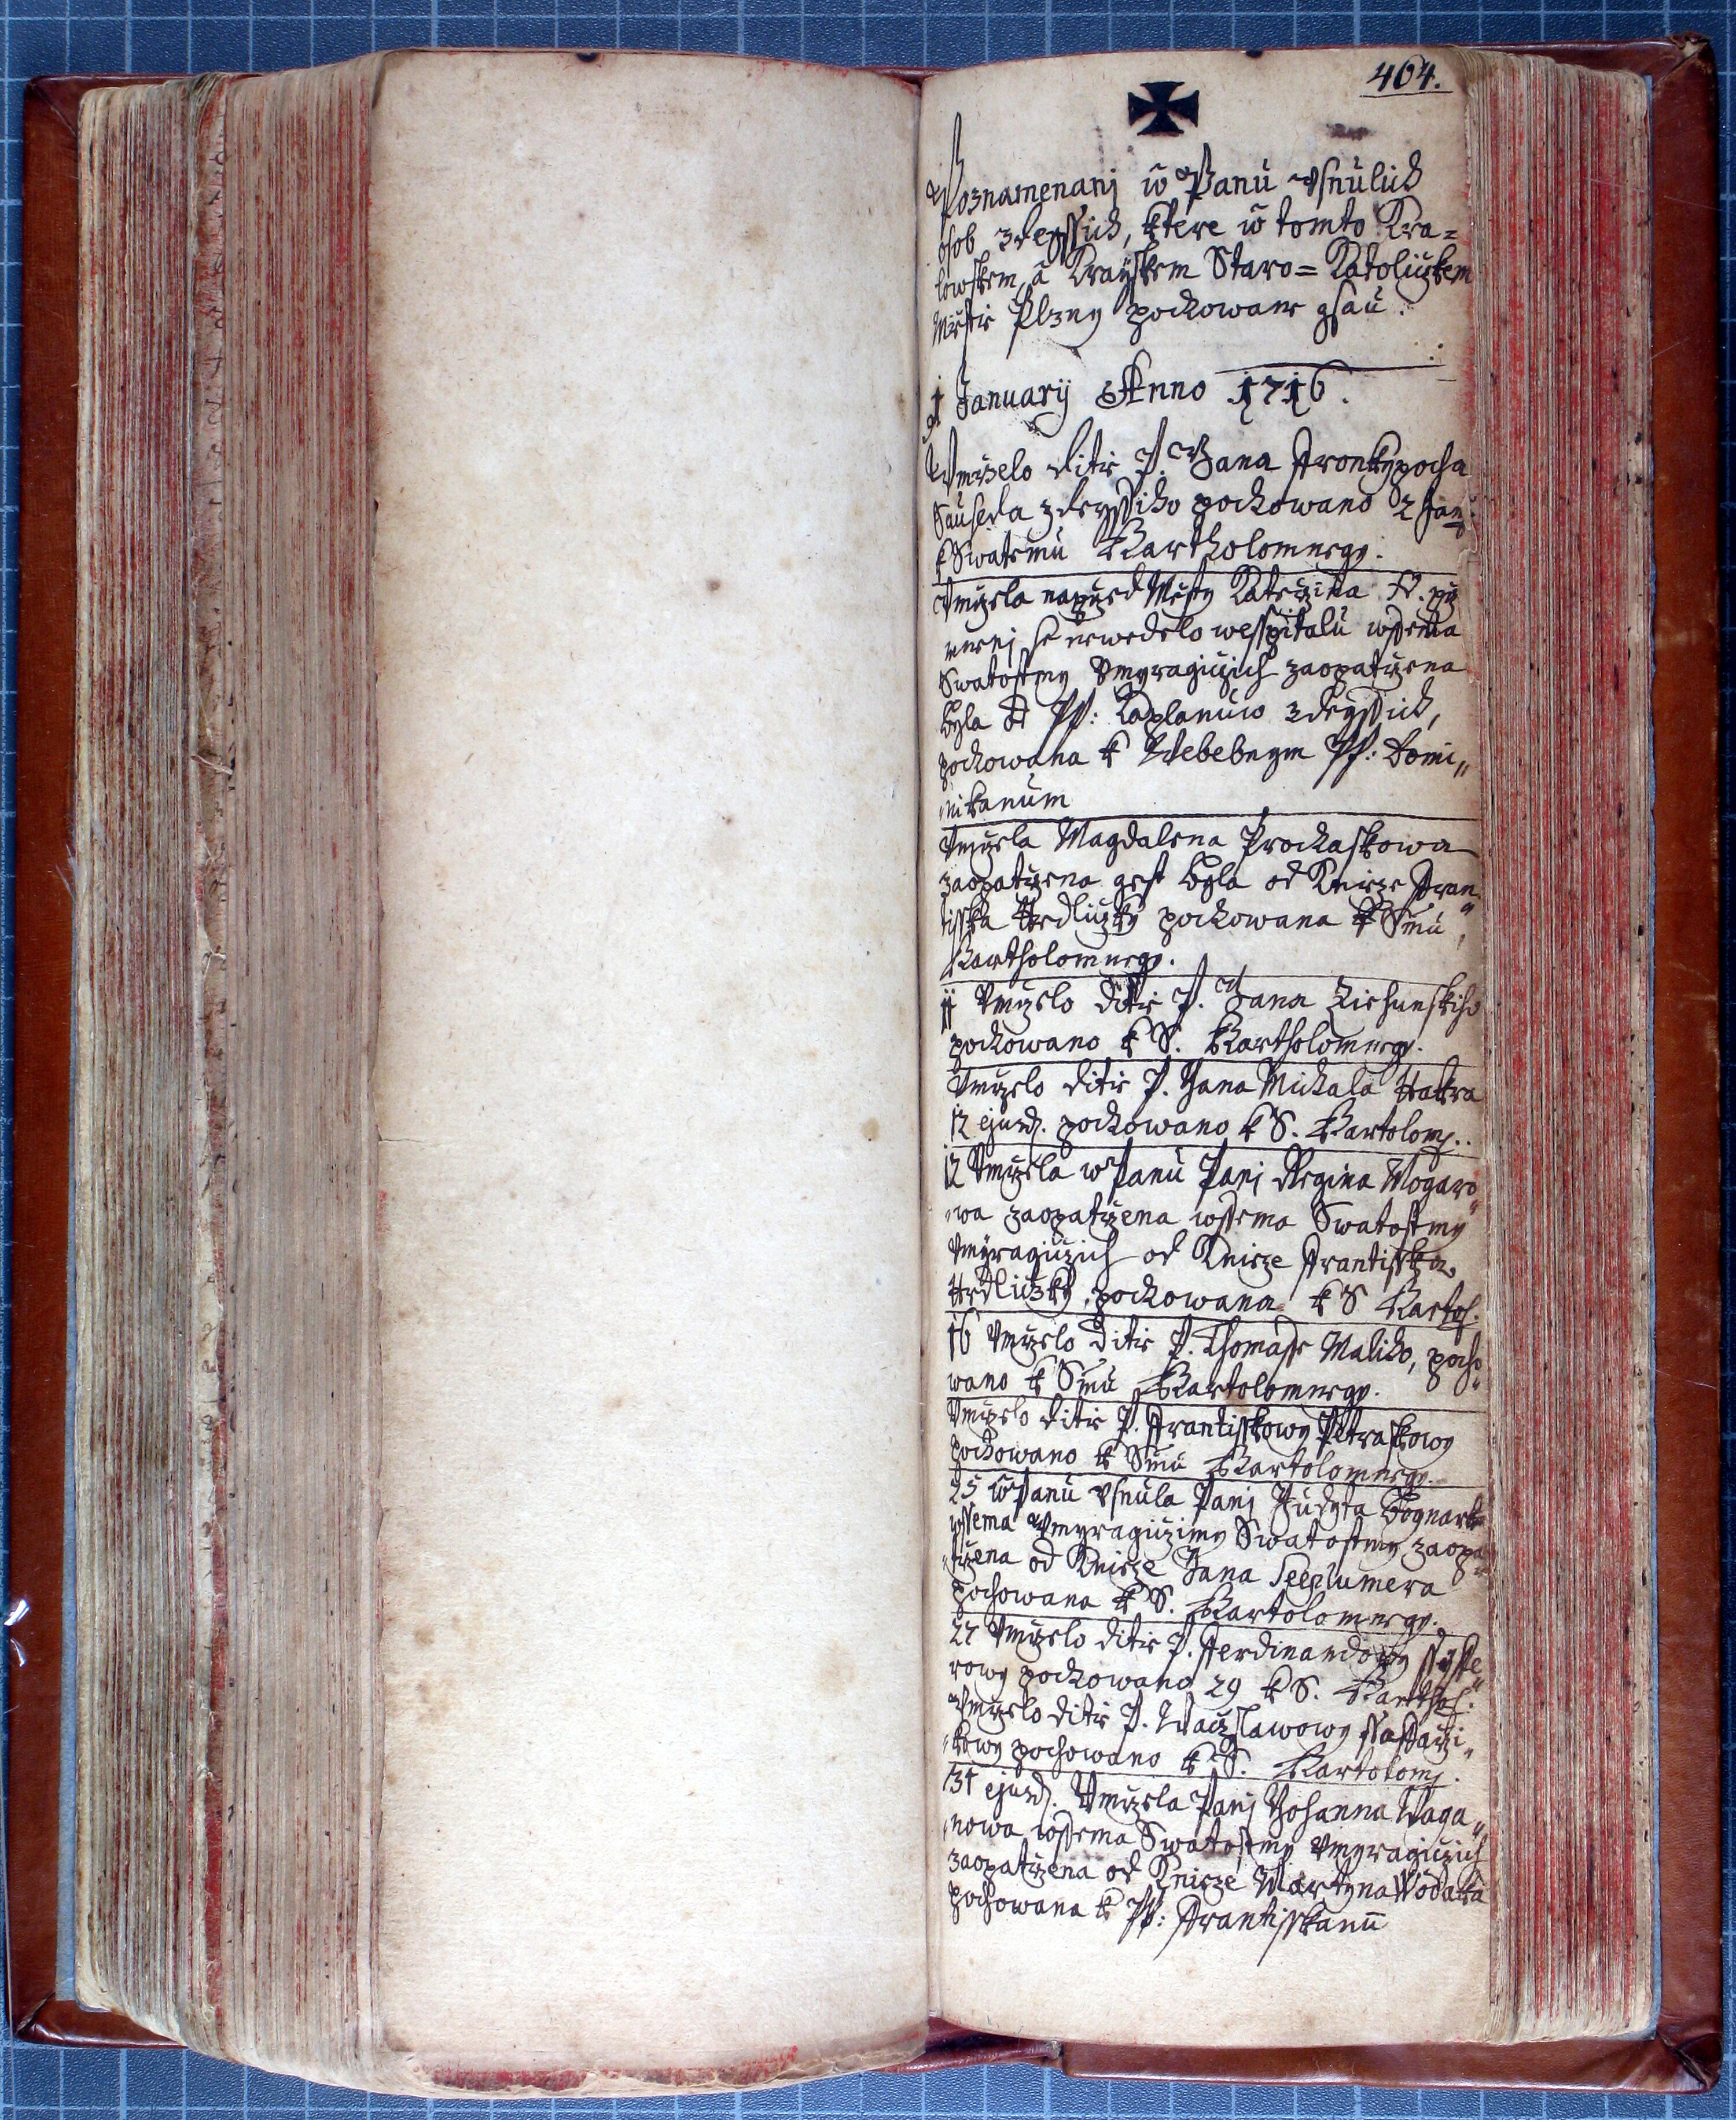 464.
Poznamenanj w Panu vsnulich
osob zdegssich, ktere w tomto Kra=
lowskem, a Kragskem Staro=Katolitzkem
Mieste Plzny pochowane gsau.
1 January Anno 1716.
Vmrzelo ditie P. Jana
Sauseda zdegssiho pochowano 2 Jan:
k Swatemu Bartholomiegy.
Vmrzela naprzed Miesty Katerzina
se newedelo wesspitalu wssema
Swatostmy Vmyragiczich zaopatrzena
byla od PP: Kaplanuw zdegssich,
pochowana k Welebnym PP: Domi„
„nikanum
Vmrzela Magdalena Prochaskowa
zaopatrzena gest byla od Knieze Fran„
tisska Hrdliczky pochowana k Smu
Bartholomiegy.
11 Vmrzelo ditie P. Jana
pochowano k S. Bartholomiegy.
Vmrzelo ditie P. Jana Michala Hakra
12 ejusd. pochowano k S. Bartolom..
12 Vmrzela w Panu Panj Regina Mogaro„
„wa zaopatrzena wssema Swatostmy
Vmyragiczich od Knieze Frantisska
Hrdliczky, pochowana k S Bartol.
16 Vmrzelo ditie P. Thomasse Maliho, pocho„
wano k Smu Bartolomiegy.
Vmrzelo ditie P. Frantisskowy Petraskowy
pochowano k Smu Bartolomiegy.
25 w Panu vsnula Panj Judyta
wssema Vmyragiczimy Swatostmy zaopa„
„trzena od Knieze Jana Seeplumera
pochowana k S. Bartolomiegy.
27 Vmrzelo ditie P. Ferdinandowy
rowy pochowano 29 k S. Barthol.
Vmrzelo ditie P. Waczlawowy ssaffarzi„
„kowy pochowano k S. Bartolom.
31 ejusd. Vmrzela Panj Johanna Waga„
„nowa wssema Swatostmy Vmyragiczich
zaopatrzena od Knieze Martyna Wodaka
pochowana k PP: Frantisskanu